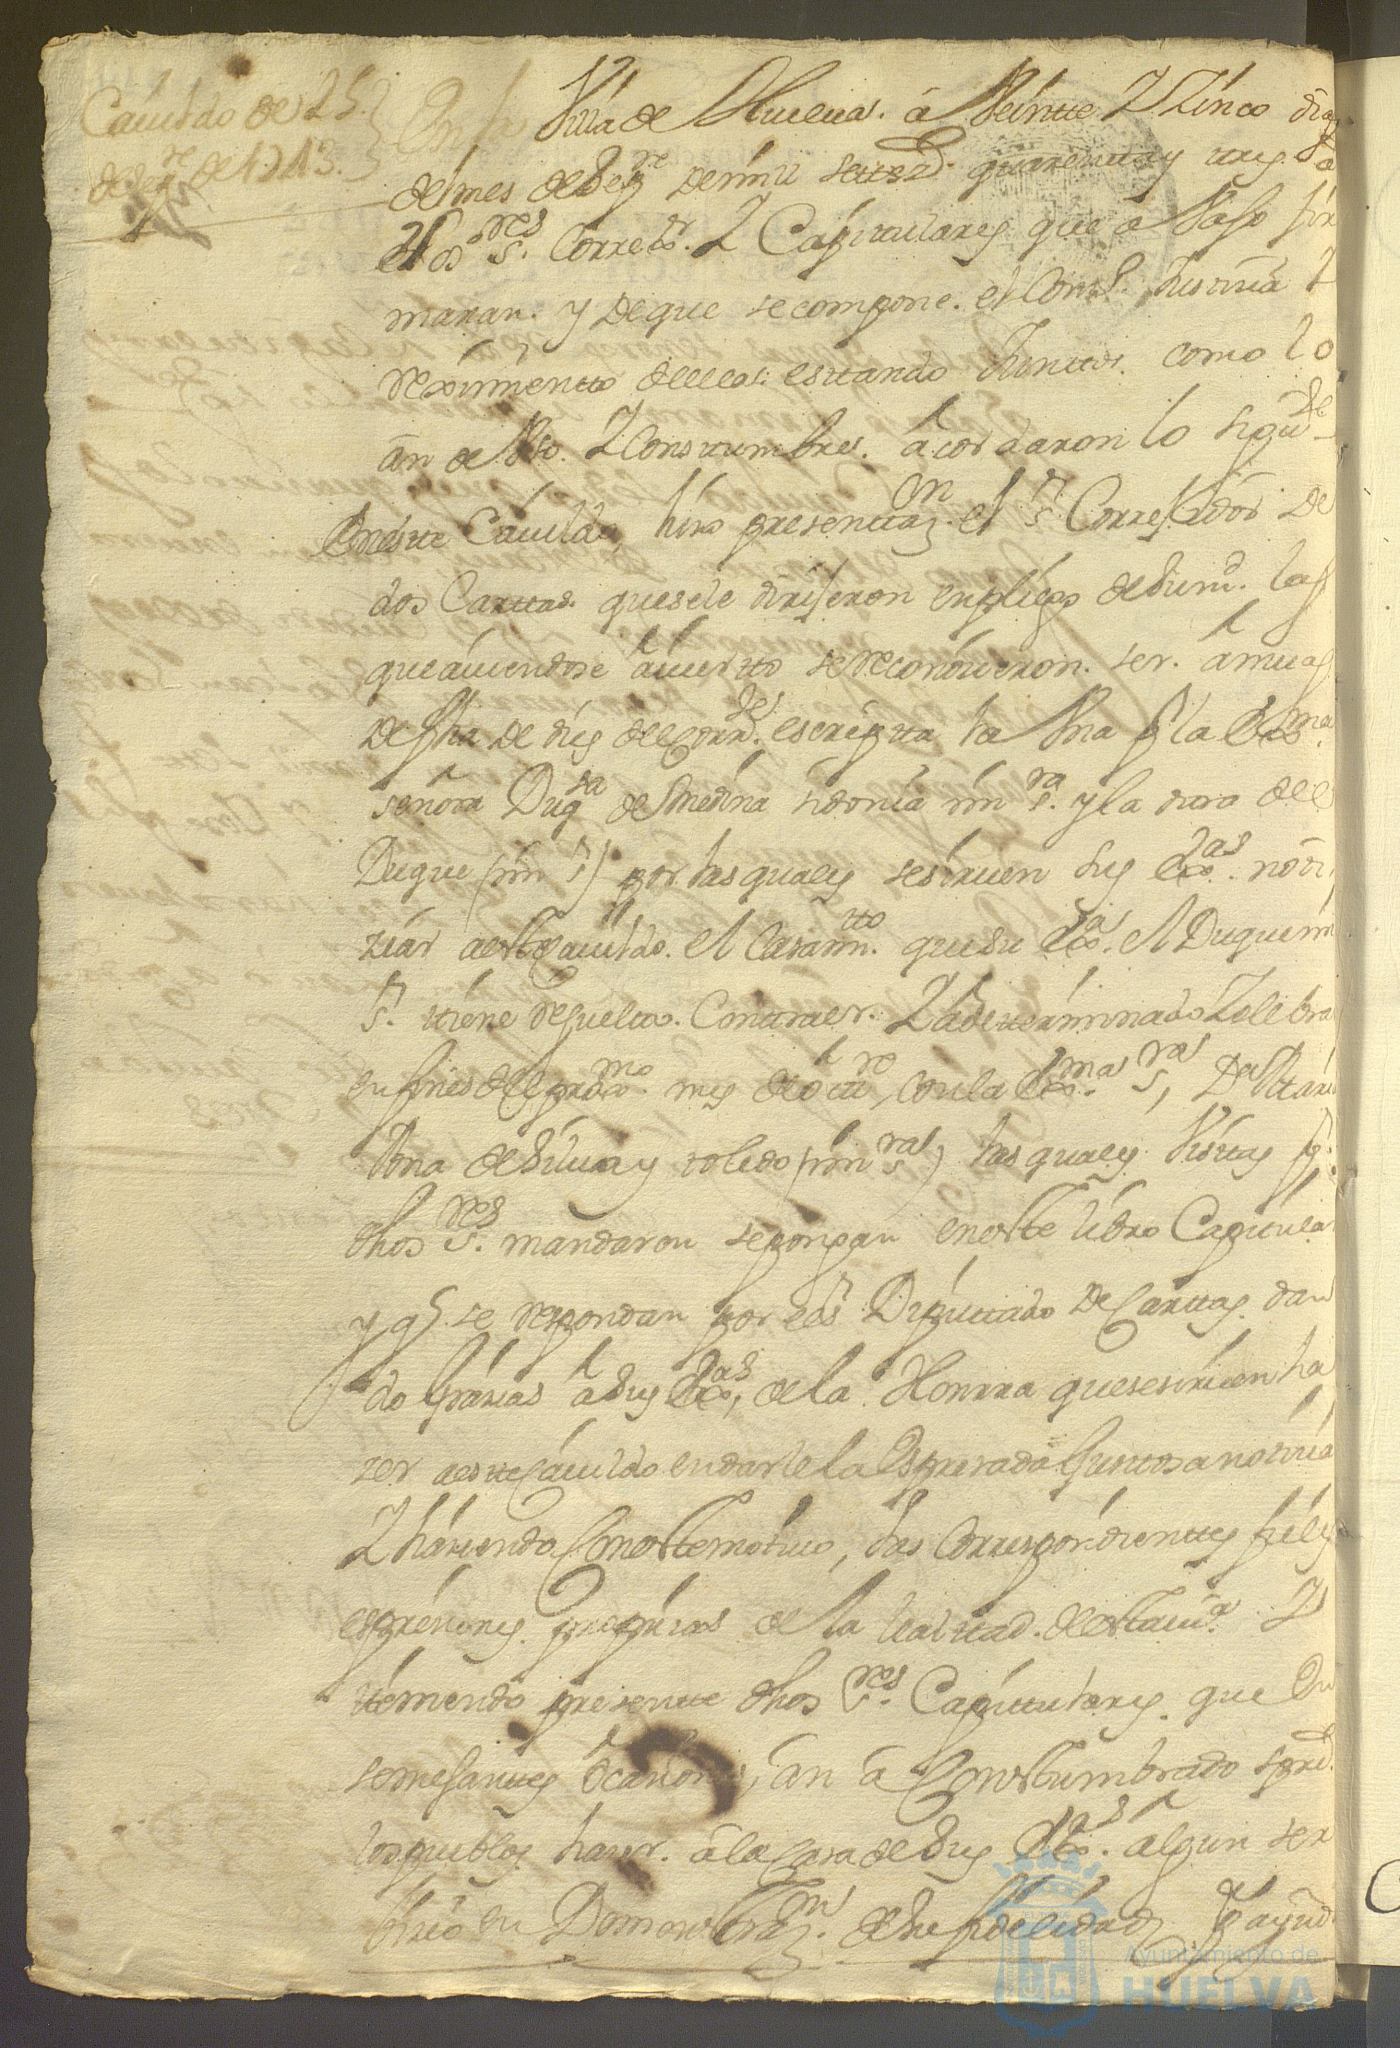 Cauildo de 25
de sep.re de 1743.
En la Villa de Huelua. â Veinte Y Zinco dias
del mes de Sep.re de mill settez.s quarenta y tres. Los
S.res Corre.dr Y Capitulares que â Vajo fir
maran. y de que se compone. el Conz.o Justizia Y
reximientto de ella: esttando Junttos. como lo
an de Vso. Y Consttumbre. âcordaron lo sigu.te
En estte Cauildo, hizo presenttaz.on el s.r Correjidor de
dos Carttas. que se le dirijeron en pliegos de Sun.d las
que auiendose âuiertto se reconozieron. ser. âmuas
de fha de diez del corr.te escriptta la Vna p.r la Exc.ma
señora Duq.sa de Medina sidonia mi s.ra y la otra del
Duque (mi s.r) por las quales se siruen sus Exc.as notti
ziar a este Cauildo. el Casam.tto que su Exc.a el Duque mi
s.r ttiene resuelto. Contraer. Y a detterminado Zelebra
en fines del prox.mo mes de octu.re con la Exc.ma s.ra D.a Mari
Ana de Silua y toledo (mi s.ra) las quales Visttas p.r
dhos S.res mandaron se pongan en este libro Capitular
y q.e se respondan por el s.r Diputtado de Carttas. dan
do Grazias â Sus Exc.as, de la Honrra que se siruen ha
zer a estte Cauildo en darle la Esperada Gustosa notizia
Y haziendo Con este motiuo, las Correspondienttes fieles
espreziones. propias de la lealttad. de esta uill.a Y
tteniendo presentte dhos S.res Capittulares. que En
semejanttes ocasiones, an â Costtumbrado
los pueblos hazer. â la Casa de Sus Exc.as âlgun ser
bizio en Demostraz.on de su fidelidad, Y ayud
Ayuntamiento de
HUELVA